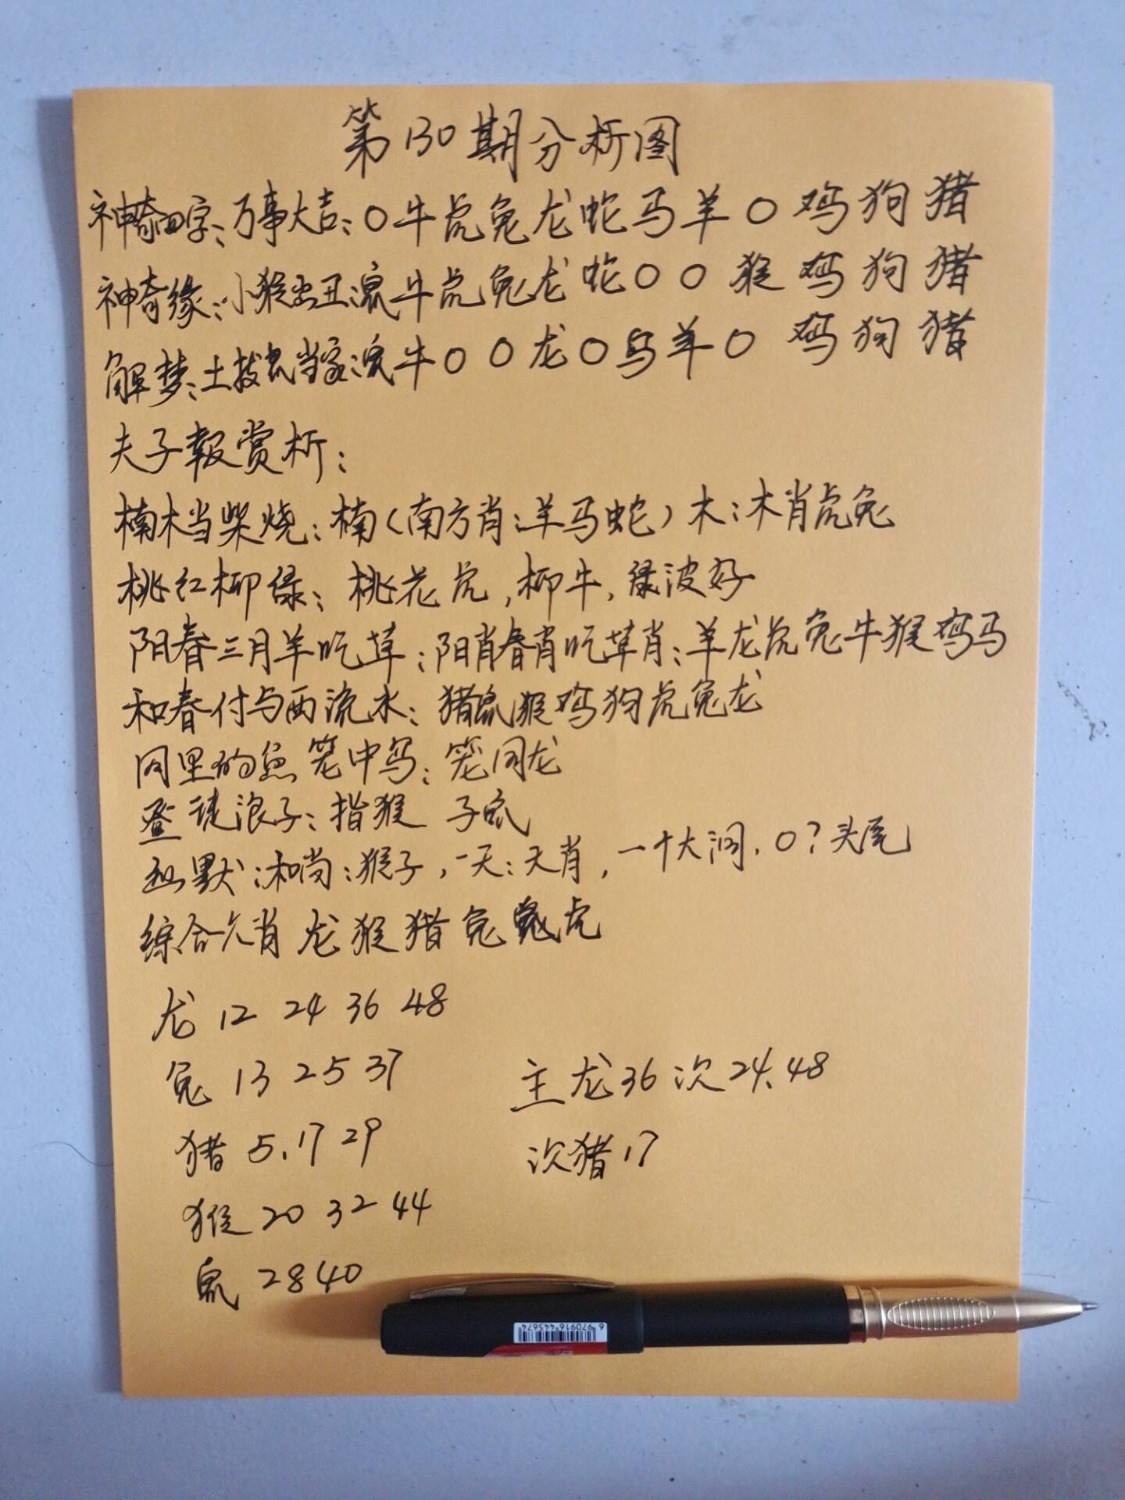 第130期分析图
神奇四字:万事大吉:0牛虎兔龙蛇马羊0鸡狗猪
神奇缘:小猴出丑:鼠牛虎兔龙蛇00猴鸡狗猪
解梦:土拨鼠当家:鼠牛00龙0马羊0鸡狗猪
夫子报赏析:
楠木当柴烧:楠(南方肖:羊马蛇)木:木肖虎兔
桃红柳绿:桃花虎,柳牛,绿波好
阳春三月羊吃草:阳肖春肖吃草肖:羊龙虎兔牛猴鸡马
和春付与西流水:猪鼠猴鸡狗虎兔龙
网里的鱼笼中鸟:笼同龙
登徒浪子:指猴 子鼠
幽默:和尚:猴子,一天:天肖,一个大洞.0?头尾
综合六肖 龙猴猪兔鼠虎
龙 12 24 36 48
兔 13 25 37 主龙36次24.48
猪 5.17 29 次猪17
猴 20 32 44
鼠 28 40
6 970916 445674